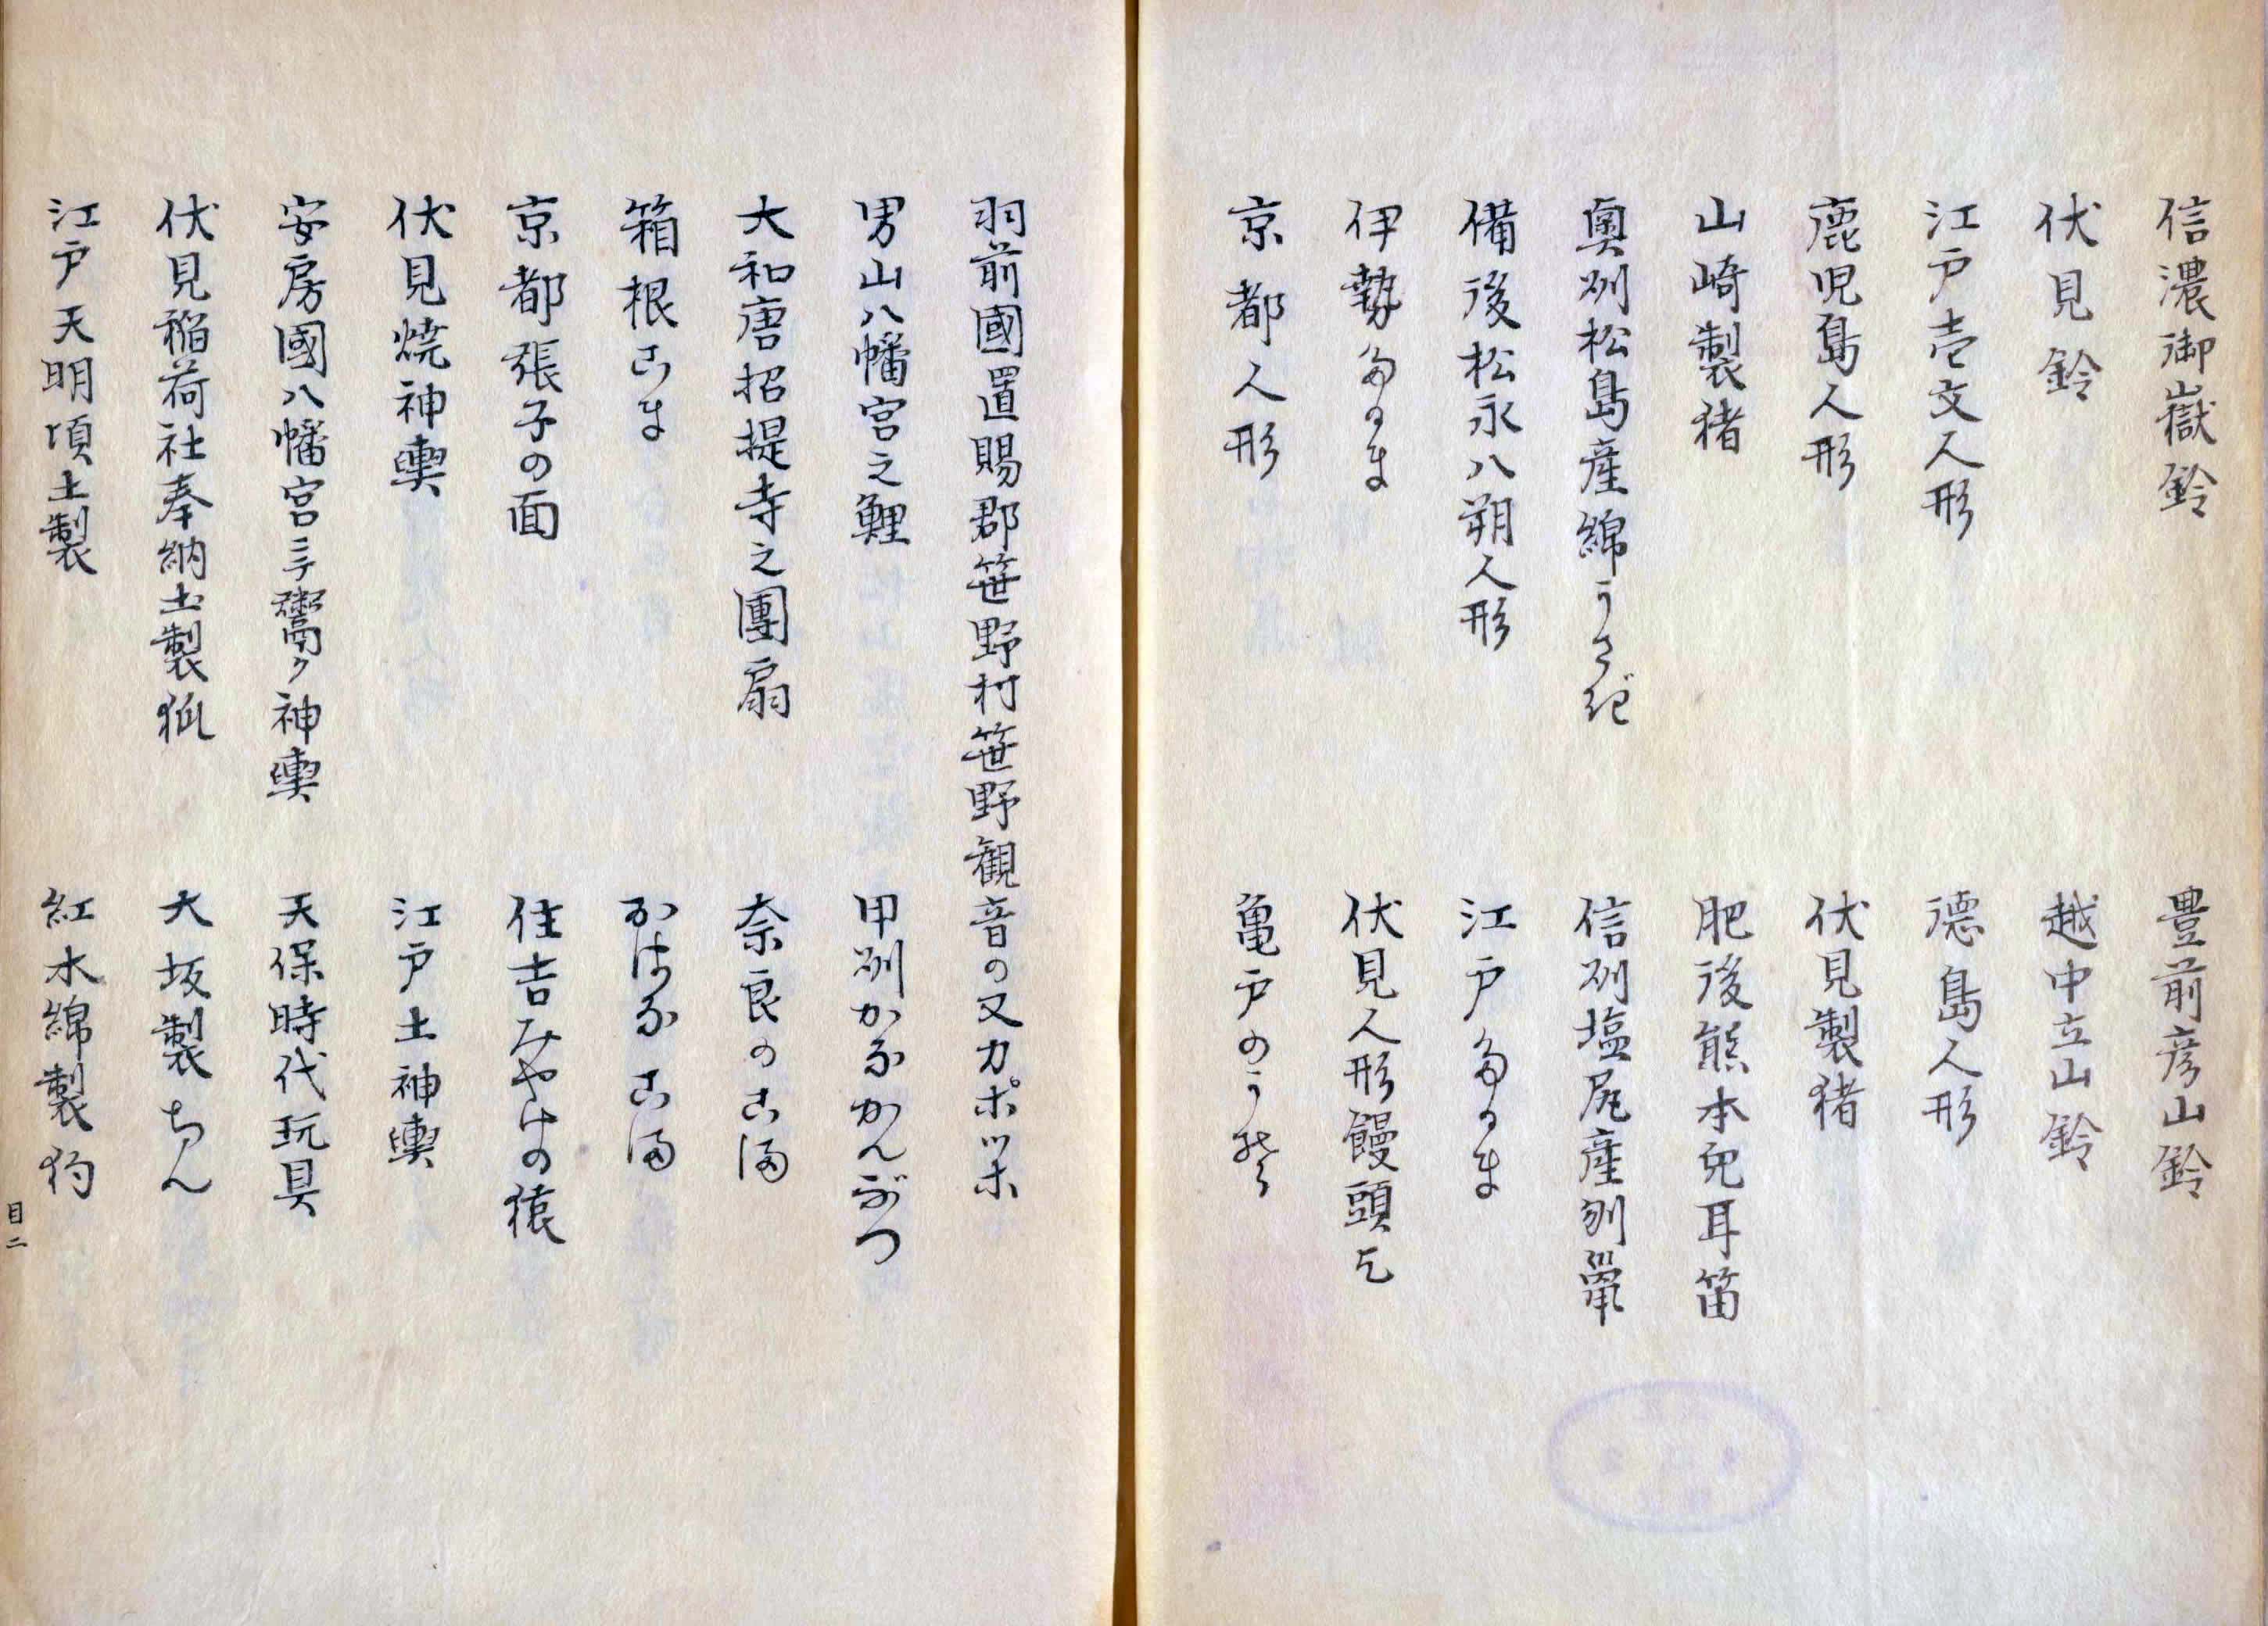 信濃御嶽鈴　豊前彦山鈴
伏見鈴　越中立山鈴
江戸壱文人形　徳島人形
鹿児島人形　伏見製猪
山崎製猪　肥後熊本兎耳笛
奥州松島産綿うさぎ　信州塩尻産刎鼡
備後松永八朔人形　江戸多るま
伊勢多るま　伏見人形饅頭乞
京都人形　亀戸のうそ
羽前國置賜郡笹野村笹野観音の又カポッポ
男山八幡宮之鯉　甲州かなかんぶつ
大和唐招提寺之團扇　奈良のこま
箱根こま　おはなこま
京都張子の面　住吉みやけの猿
伏見焼神輿　江戸土神輿
安房國八幡宮ニテ鬻ク神輿　天保時代玩具
伏見稲荷社奉納土製狐　大坂製ちん
江戸天明頃土製　紅木綿製狗
目二